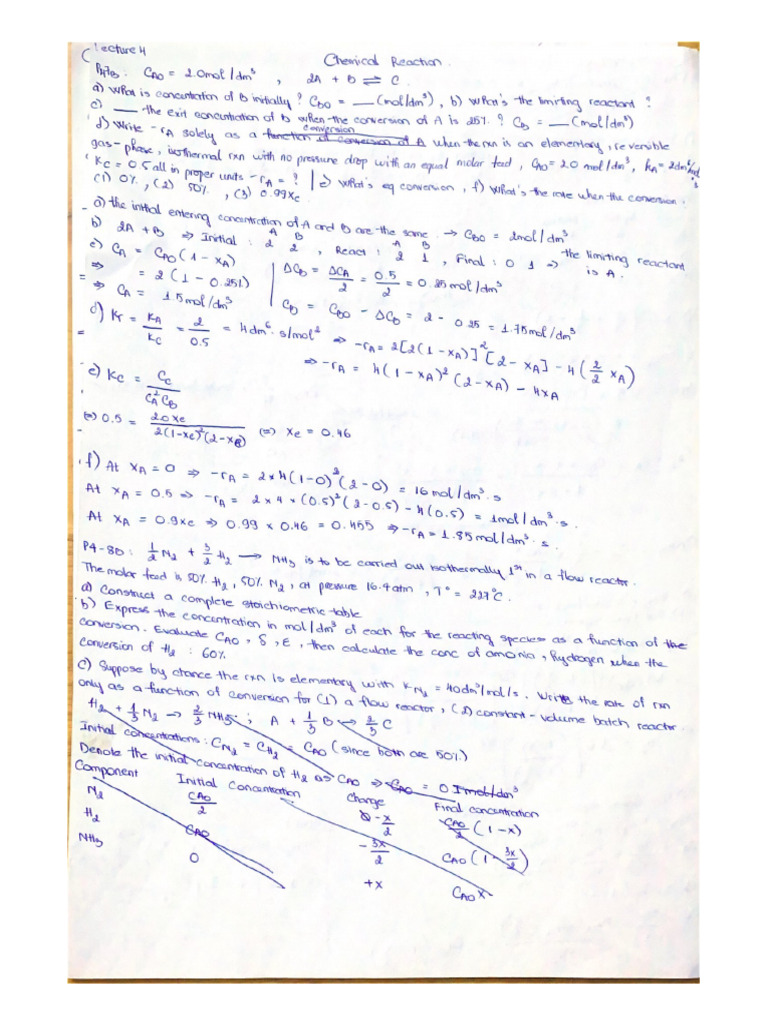 Lecture 4
Chemical Reaction.
P4-7B: CA0 = 2.0mol/dm³ , 2A + B ⇌ C.
a) What is concentration of B initially? CB0 = __ (mol/dm³), b) What's the limiting reactant?
c) __ the exit concentration of B when the conversion of A is 25%? CB = __ (mol/dm³)
d) Write -rA solely as a function of conversion of A when the rxn is an elementary, reversible
gas-phase, isothermal rxn with no pressure drop with an equal molar feed, CA0 = 2.0 mol/dm³, kA = 2dm⁶/mol²·s
KC = 0.5 all in proper units -rA = ? | e) What's eq conversion, f) What's the rate when the conversion.
(1) 0%, (2) 50%, (3) 0.99Xe
a) the initial entering concentration of A and B are the same. → CB0 = 2mol/dm³
b) 2A + B ⇒ Initial: A 2 B 2 , React: A 2 B 1 , Final: 0 1 ⇒ the limiting reactant is A.
c) CA = CA0(1 - xA)
⇒ = 2(1 - 0.251)
⇒ CA = 1.5mol/dm³
ΔCB = ΔCA/2 = 0.5/2 = 0.25mol/dm³
CB = CB0 - ΔCB = 2 - 0.25 = 1.75mol/dm³
d) Kr = kA/kC = 2/0.5 = 4dm⁶·s/mol² ⇒ -rA = 2[2(1-xA)]²[2-xA] - 4(2/2 xA)
⇒ -rA = 4(1-xA)²(2-xA) - 4xA
e) KC = CC/CA²CB
⇔ 0.5 = 2.0xe/2(1-xe)²(2-xe) ⇔ xe = 0.46
f) At xA = 0 ⇒ -rA = 2×4(1-0)²(2-0) = 16mol/dm³·s
At xA = 0.5 ⇒ -rA = 2×4×(0.5)²(2-0.5) - 4(0.5) = 1mol/dm³·s.
At xA = 0.9xe ⇒ 0.99 × 0.46 = 0.455 ⇒ -rA = 1.85mol/dm³·s.
P4-8D: 1/2 N2 + 3/2 H2 → NH3 is to be carried out isothermally 1st in a flow reactor.
The molar feed is 50% H2, 50% N2, at pressure 16.4atm, T° = 227°C.
a) Construct a complete stoichiometric table
b) Express the concentration in mol/dm³ of each for the reacting species as a function of the
conversion. Evaluate CA0, δ, ε, then calculate the conc of amonia, hydrogen when the
conversion of H2: 60%
c) Suppose by chance the rxn is elementary with kN2 = 40dm³/mol/s. Write the rate of rxn
only as a function of conversion for (1) a flow reactor, (2) constant-volume batch reactor.
H2 + 1/3 N2 → 2/3 NH3 ; A + 1/3 B ↔ 2/3 C
Initial concentrations: CN2 = CH2 = CA0 (since both are 50%)
Denote the initial concentration of H2 as CA0 ⇒ CA0 = 0.1mol/dm³
Component Initial Concentration Change Final concentration
N2 CA0/2 -x/2 CA0/2 (1-x)
H2 CA0 -3x/2 CA0(1-3x/2)
NH3 0 +x CA0x